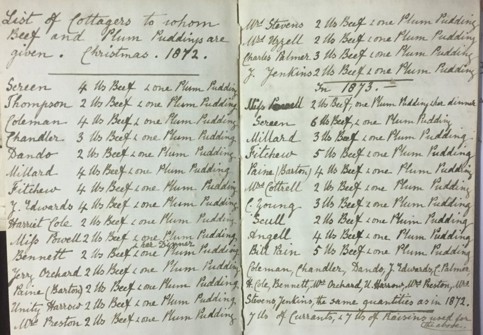 List of Cottagers to whom
Beef and Plum Puddings are
given. Christmas. 1872.
Sereen 4 lbs Beef & one Plum Pudding
Thompson 2 lbs Beef & one Plum Pudding
Coleman 4 lbs Beef & one Plum Pudding
Chandler 3 lbs Beef & one Plum Pudding
Dando 2 lbs Beef & one Plum Pudding
Millard 4 lbs Beef & one Plum Pudding
Fitchew 4 lbs Beef & one Plum Pudding
J. Edwards 4 lbs Beef & one Plum Pudding
Harriet Cole 2 lbs Beef & one Plum Pudding
Miss Powell 2 lbs Beef & one Plum Pudding
& her Dinner
Bennett 2 lbs Beef & one Plum Pudding
Jerry Orchard 2 lbs Beef & one Plum Pudding
Paine (Barton) 2 lbs Beef & one Plum Pudding
Unity Harrow 2 lbs Beef & one Plum Pudding
Mrs Preston 2 lbs Beef & one Plum Pudding
Mrs Stevens 2 lbs Beef & one Plum Pudding
Mrs Uzzell 2 lbs Beef & one Plum Pudding
Charles Palmer 3 lbs Beef & one Plum Pudding
J. Jenkins 2 lbs Beef & one Plum Pudding
In 1873.
Miss Powell 2 lbs Beef, one Plum Pudding & her dinner
Sereen 6 lbs Beef & one Plum Pudding
Millard 3 lbs Beef & one Plum Pudding.
Fitchew 5 lbs Beef & one Plum Pudding
Paine (Barton) 4 lbs Beef & one Plum Pudding
Mrs Cottrell 2 lbs Beef & one Plum Pudding
C. Young 3 lbs Beef & one Plum Pudding
Scull 2 lbs Beef & one Plum Pudding
Angell 4 lbs Beef & one Plum Pudding
Bill Pein 5 lbs Beef & one Plum Pudding
Coleman, Chandler, Dando, J. Edwards, C. Palmer,
H. Cole, Bennett, Wm Orchard, U. Harrow, Mrs Preston, Mrs
Stevens, Jenkins, the same quantities as in 1872.
7 lbs of Currants, & 7 lbs of Raisins used for
the above.